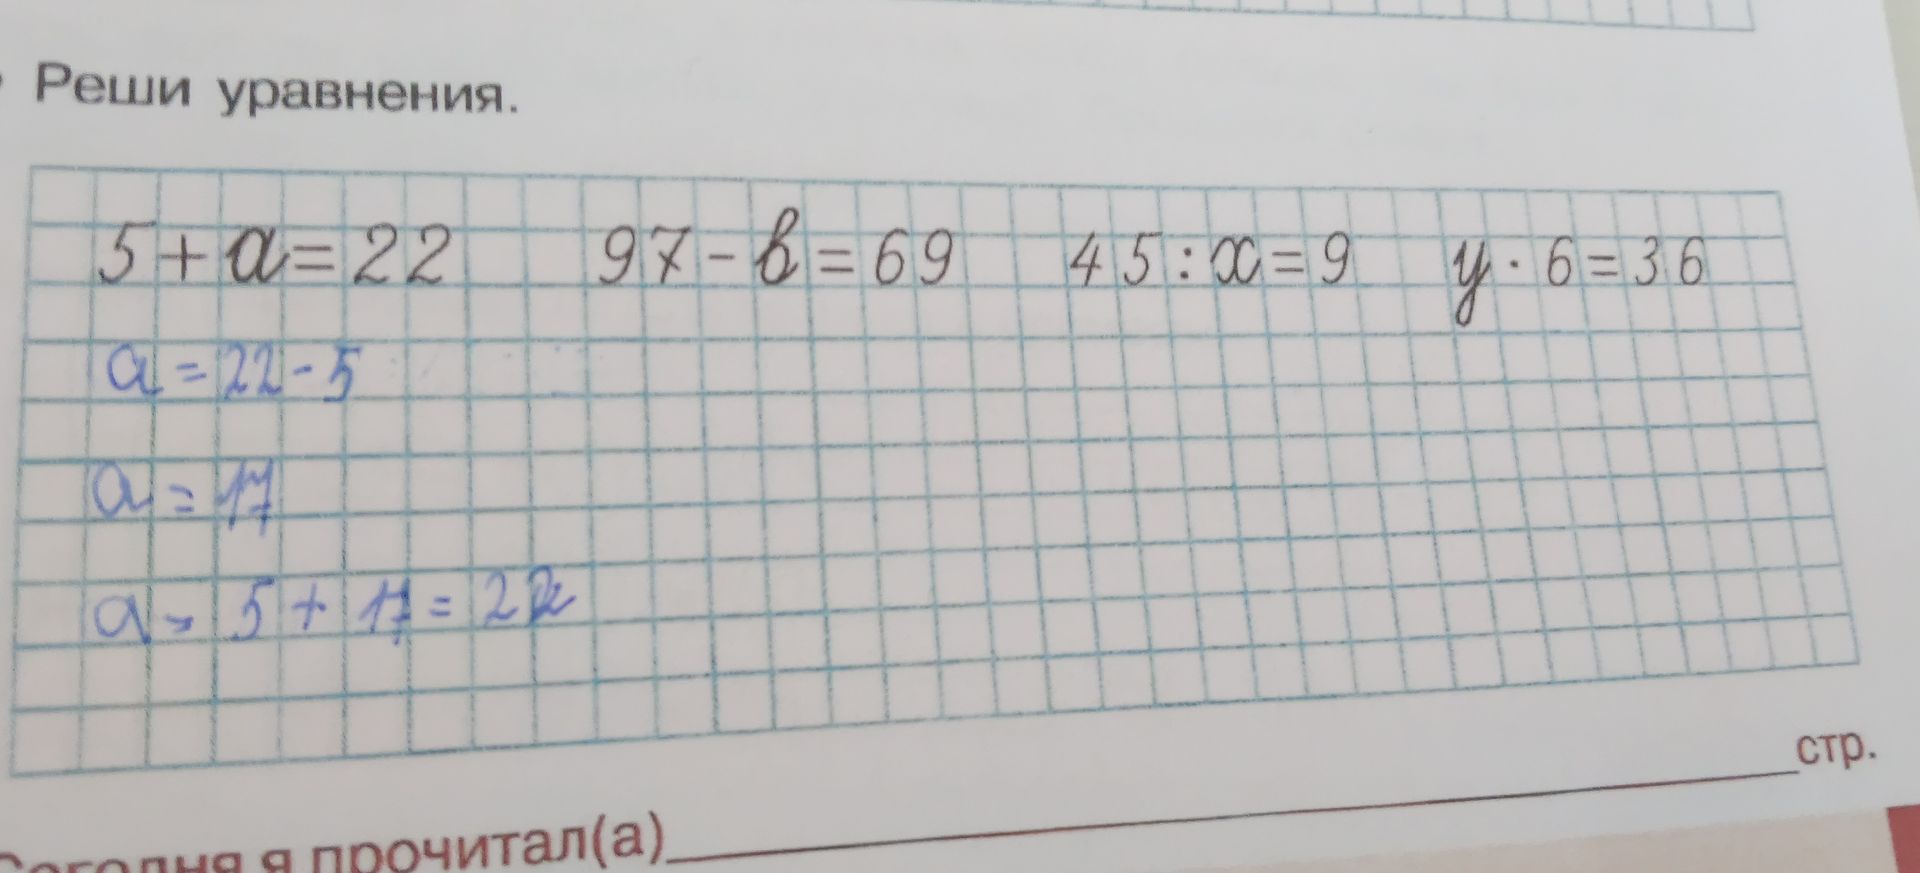 Реши уравнения.
5 + a = 22 97 - b = 69 45 : x = 9 y · 6 = 36
a = 22 - 5
a = 17
a = 5 + 17 = 22
стр.
Сегодня я прочитал(а)